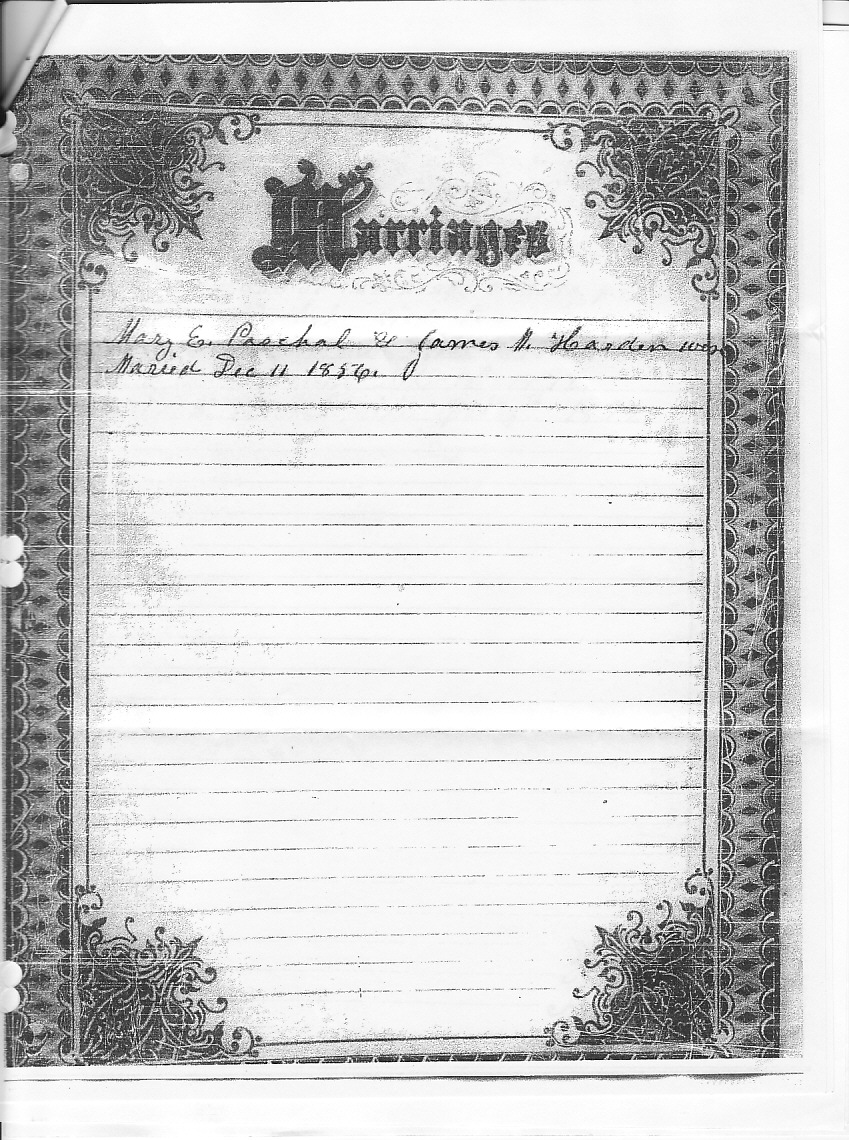 Marriages
Mary E. Paschal & James M. Harden were
Maried Dec 11 1856.